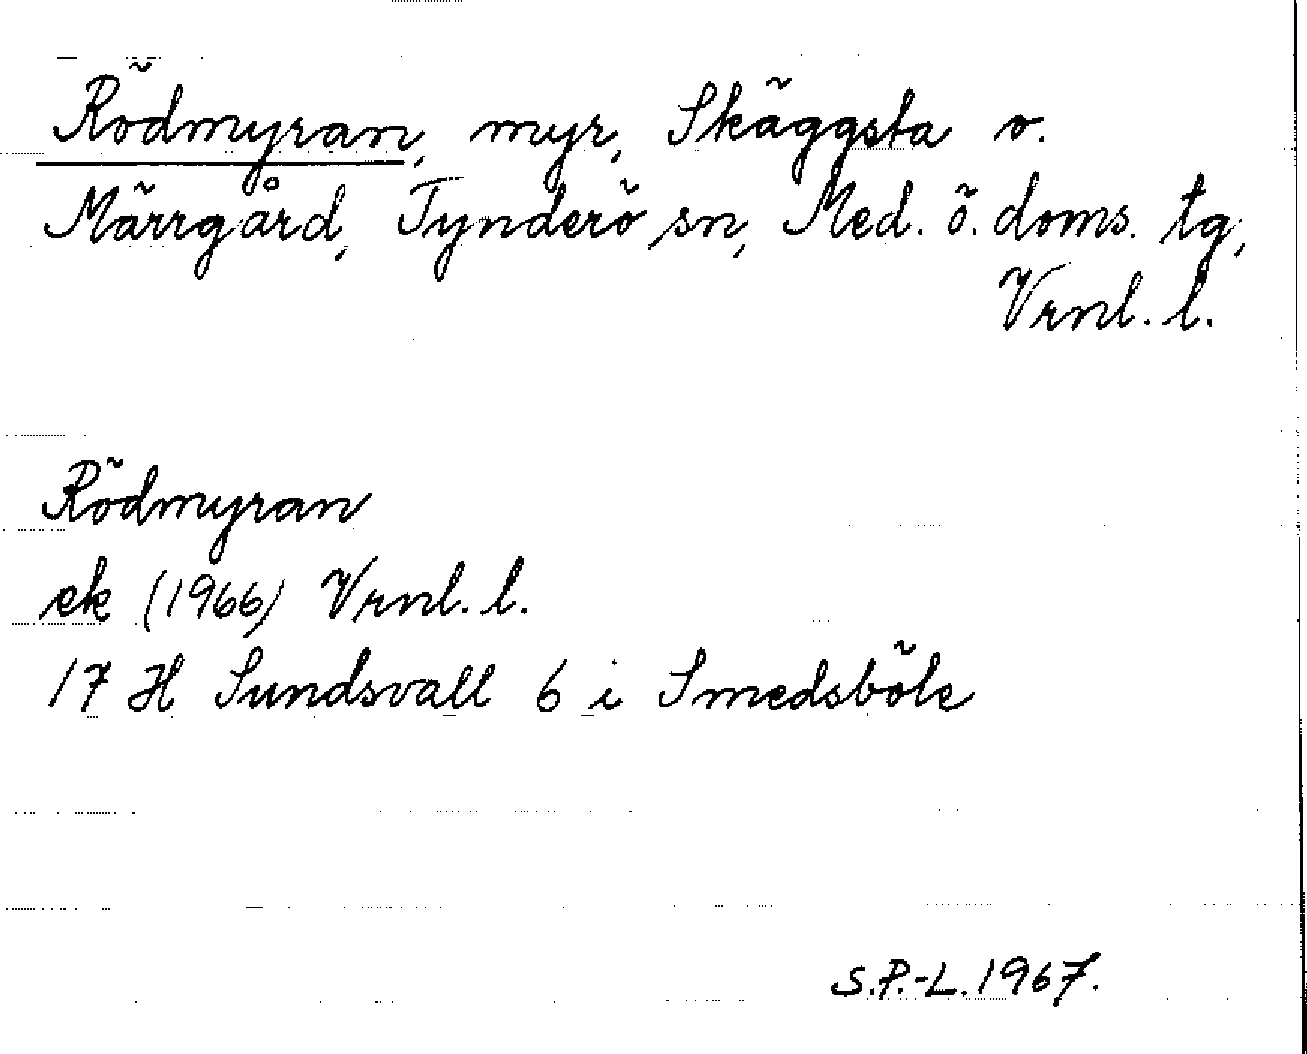 Rödmyran, myr, Skäggsta o.
Märrgård, Tynderö sn, Med. ö. doms. tg,
Vrnl. l.
Rödmyran
ek (1966) Vrnl. l.
17 H Sundsvall 6 i Smedsböle
S.P.-L. 1967.